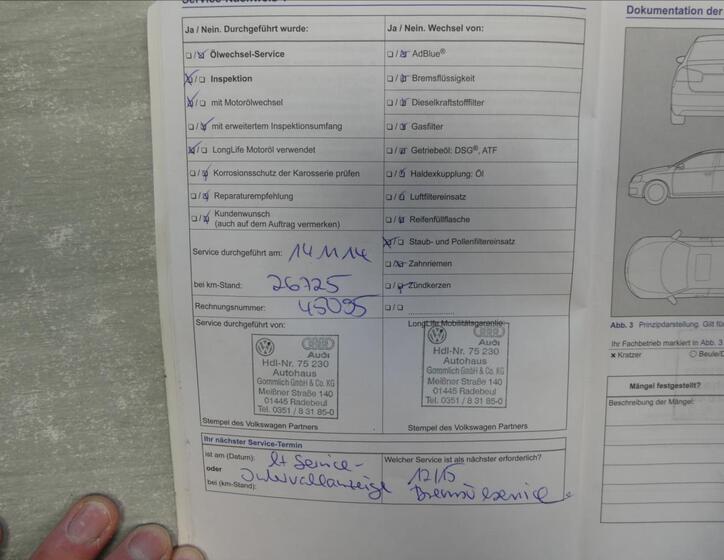 Dokumentation der
Ja / Nein. Durchgeführt wurde:
Ja / Nein. Wechsel von:
Ölwechsel-Service
AdBlue®
Inspektion
Bremsflüssigkeit
mit Motorölwechsel
Dieselkraftstofffilter
mit erweitertem Inspektionsumfang
Gasfilter
LongLife Motoröl verwendet
Getriebeöl: DSG®, ATF
Korrosionsschutz der Karosserie prüfen
Haldexkupplung: Öl
Reparaturempfehlung
Luftfiltereinsatz
Kundenwunsch
(auch auf dem Auftrag vermerken)
Reifenfüllflasche
Staub- und Pollenfiltereinsatz
Service durchgeführt am: 14 11 14
Zahnriemen
bei km-Stand: 26725
Zündkerzen
Rechnungsnummer: 45095
Service durchgeführt von:
LongLife Mobilitätsgarantie:
Audi
Hdl-Nr. 75 230
Autohaus
Gommlich GmbH & Co. KG
Meißner Straße 140
01445 Radebeul
Tel. 0351 / 8 31 85-0
Audi
Hdl-Nr. 75 230
Autohaus
Gommlich GmbH & Co. KG
Meißner Straße 140
01445 Radebeul
Tel. 0351 / 8 31 85-0
Stempel des Volkswagen Partners
Stempel des Volkswagen Partners
Ihr nächster Service-Termin
ist am (Datum): lt Service-
oder Intervallanzeige
bei (km-Stand):
Welcher Service ist als nächster erforderlich?
12/15
Bremsölservice
Abb. 3 Prinzipdarstellung. Gilt für
Ihr Fachbetrieb markiert in Abb. 3
x Kratzer
Mängel festgestellt?
Beschreibung der Mängel: